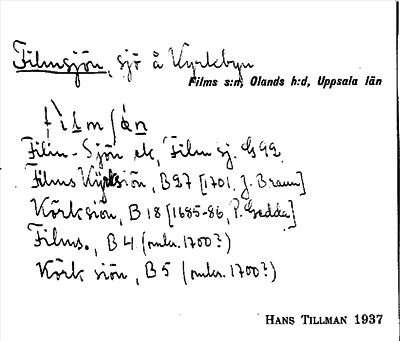 Filmsjön, sjö å Kyrkbyn
Films s:n, Olands h:d, Uppsala län
Film-Sjön ek, Film sj. G 92
Films Kyrksiön, B 27 [1701, J. Braun]
Körksiön, B 18 [1685-86, P. Gedda]
Films., B 4 (omkr. 1700?)
Körk siön, B 5 (omkr. 1700?)
HANS TILLMAN 1937